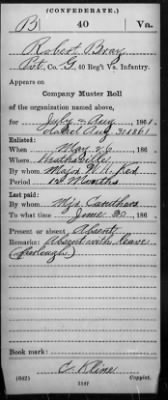 (CONFEDERATE.)
B 40 Va.
Robert Bray
Pvt, Co. G, 40 Reg't Va. Infantry.
Appears on
Company Muster Roll
of the organization named above,
for July & Aug, 1861.
dated Aug 31 1861
Enlisted:
When May 26, 186 .
Where Heathsville
By whom Major W. H. Ker
Period 12 Months
Last paid:
By whom Maj. Caruthers
To what time June 30, 186 .
Present or absent Absent
Remarks: Absent with leave
(furlough)
Book mark:
C. Kline
(642) Copyist.